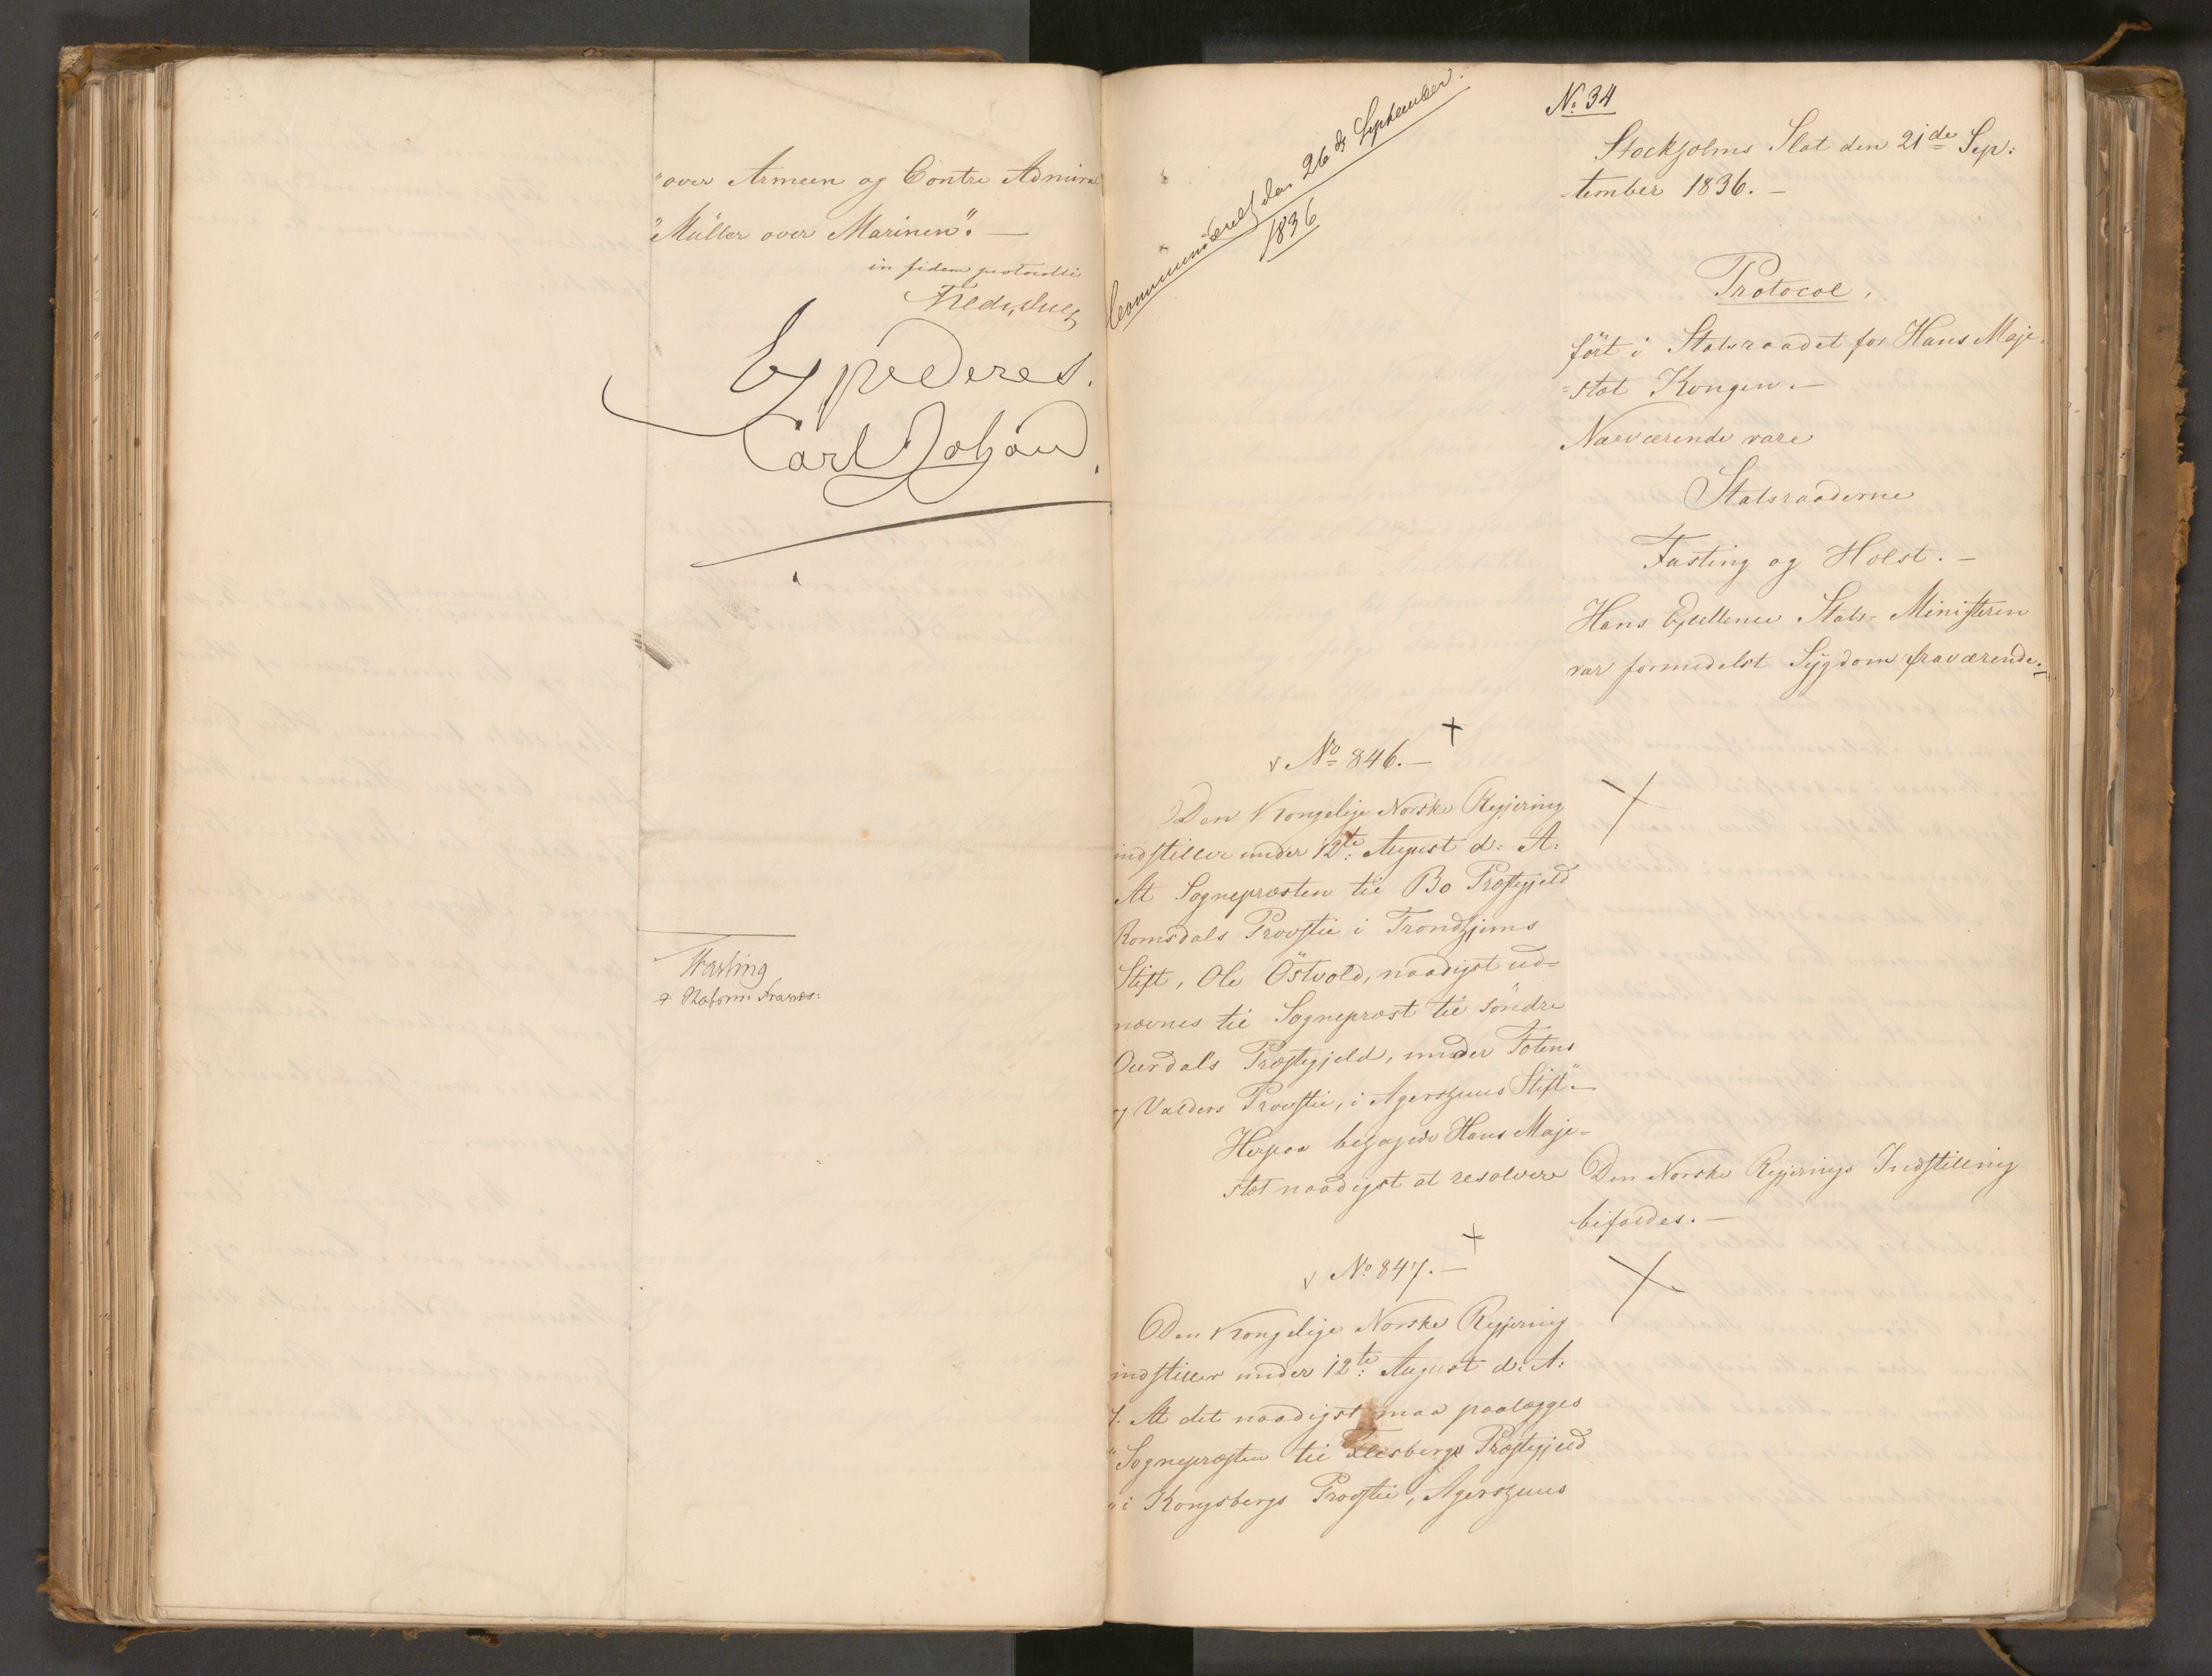 "over Armeen og Contre Admiral
"Müller over Marinen". —
in fidem protocolli
Expederes.
Carl Johan
Fasting
Communiceret den 26 d September
1836
No. 34
Stockholms Slot den 21de Sep:
tember 1836. —
Protocol,
fört i Statsraadet for Hans Maje
=stæt Kongen. —
Nærværende vare
Statsraaderne
Fasting og Holst. —
Hans Excellence Stats-Ministeren
var formedelst Sygdom fraværende. —
No 846. —
Den Kongelige Norske Regjering
indstiller under 12te: August d: A:
At Sognepræsten til Bo Præstegjeld
Romsdals Provstie i Trondhjems
Stift, Ole Östvold, naadigst ud-
nævnes til Sognepræst til söndre
Ourdals Præstegjeld, under Totens
og Valders Provstie, i Agershuus Stift" —
Herpaa behagede Hans Maje-
stæt naadigst at resolvere
Den Norske Regjerings Indstilling
bifaldes. —
No 847. —
Den Kongelige Norske Regjering
indstiller under 12te: August d: A:
1. At det naadigst maa paalægges
"Sognepræsten til Flesbergs Præstegjeld
"i Kongsbergs Provstie, Agershuus